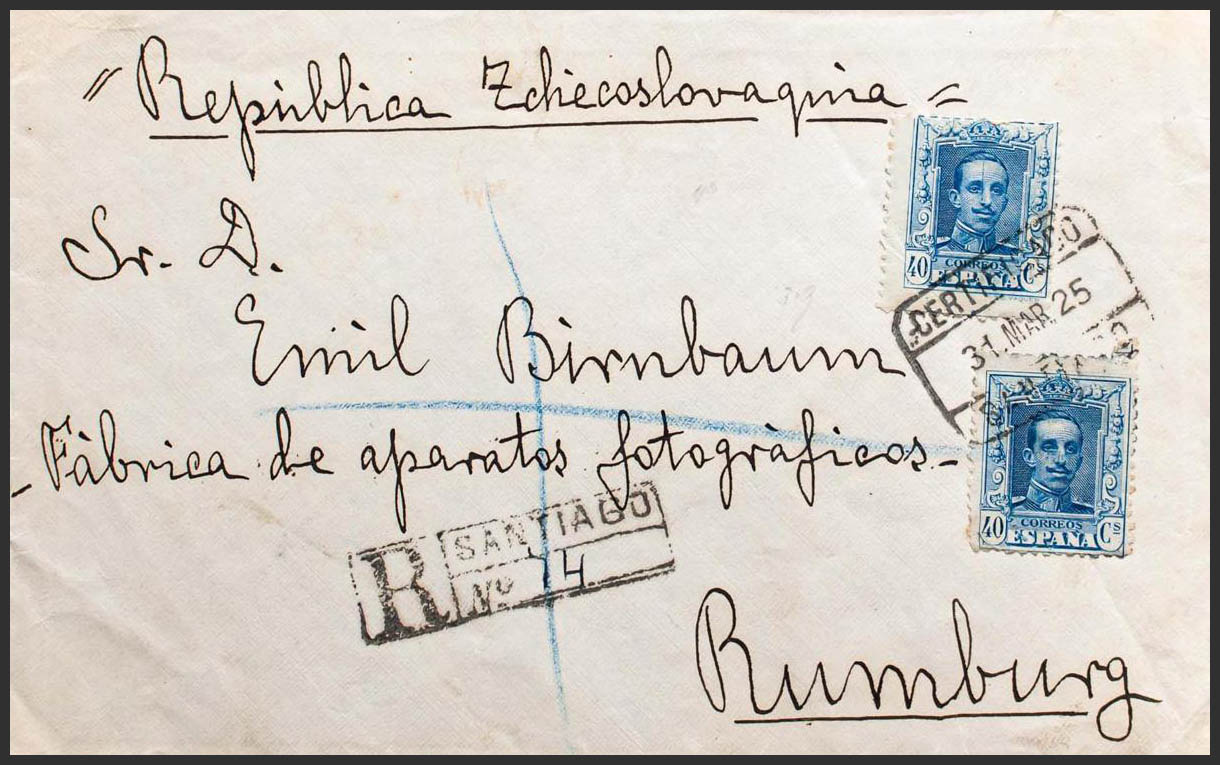 " República Zchecoslovaquia =
Sr. D.
Emil Birnbaum
- Fàbrica de aparatos fotogràficos -
Rumburg
40 CORREOS Cs
ESPAÑA
CERTIFICADO
31. MAR. 25
40 CORREOS Cs
ESPAÑA
R SANTIAGO
Nº 14